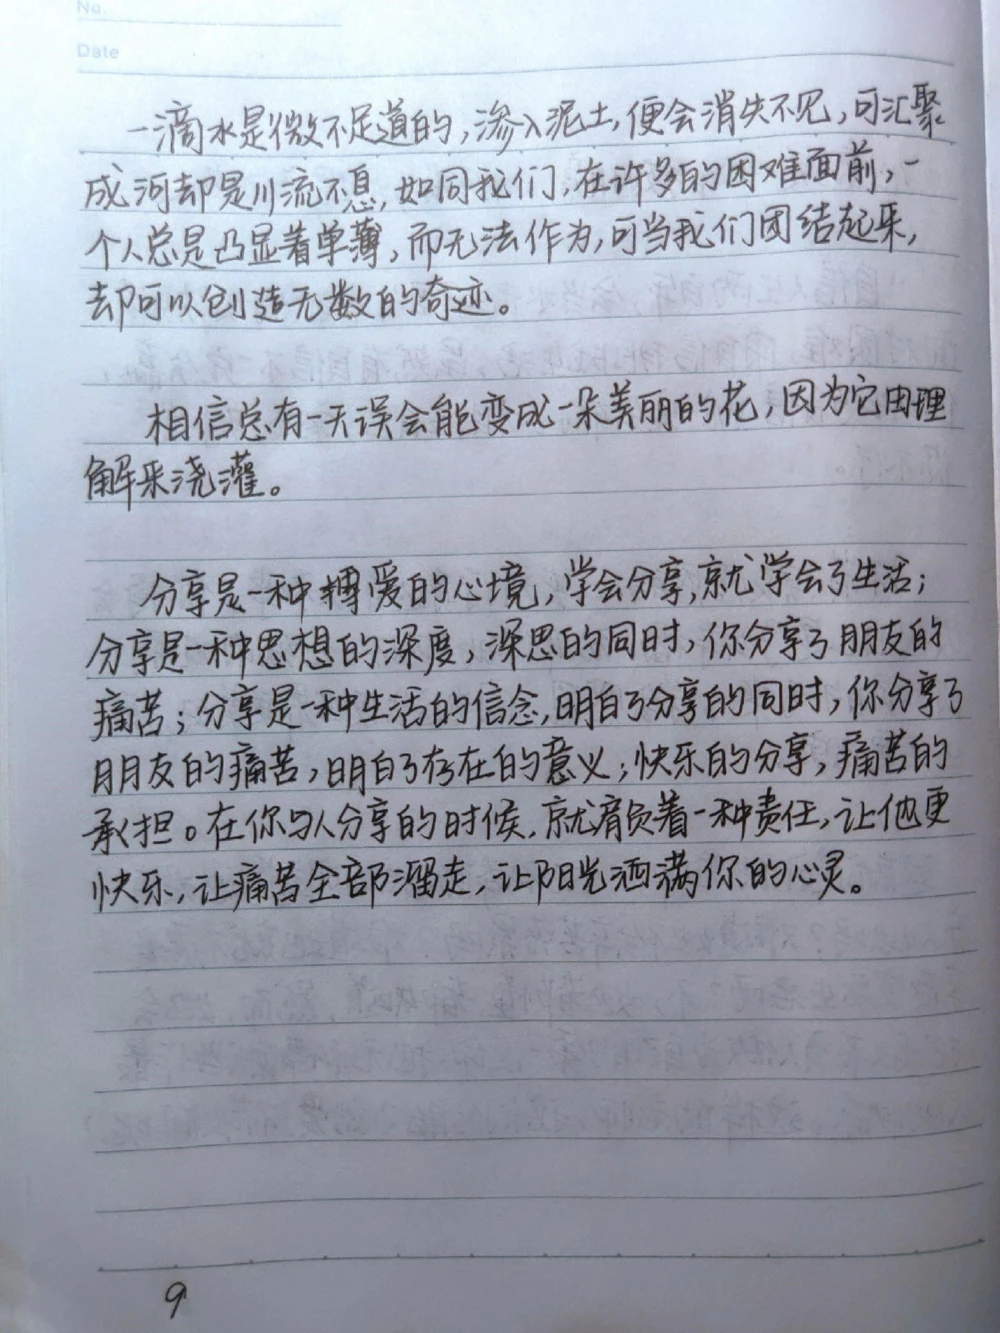 No.
Date
一滴水是微不足道的，渗入泥土，便会消失不见，可汇聚
成河却是川流不息，如同我们，在许多的困难面前，一
个人总是凸显着单薄，而无法作为，可当我们团结起来，
却可以创造无数的奇迹。
相信总有一天误会能变成一朵美丽的花，因为它由理
解来浇灌。
分享是一种博爱的心境，学会分享，就学会了生活；
分享是一种思想的深度，深思的同时，你分享了朋友的
痛苦；分享是一种生活的信念，明白了分享的同时，你分享了
朋友的痛苦，明白了存在的意义；快乐的分享，痛苦的
承担。在你与人分享的时候，就肩负着一种责任，让他更
快乐，让痛苦全部溜走，让阳光洒满你的心灵。
9